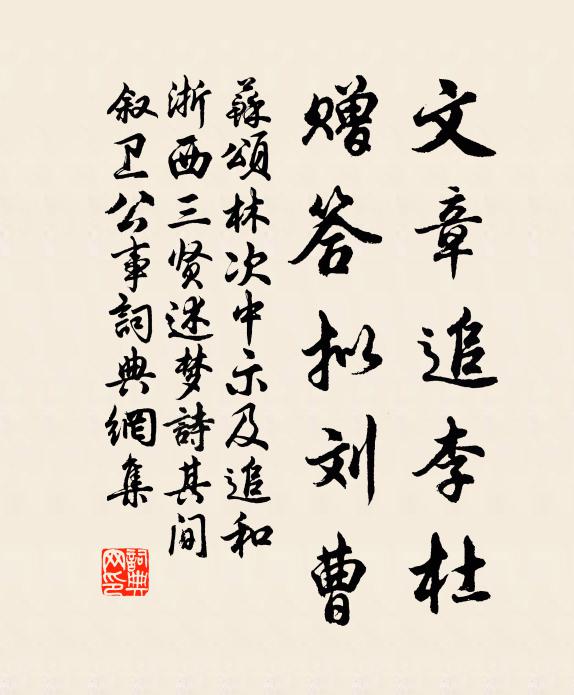 文章追李杜
赠答拟刘曹
蘇頌林次中示及追和
浙西三贤述梦詩其间
叙卫公事詞典網集
詞典
网印